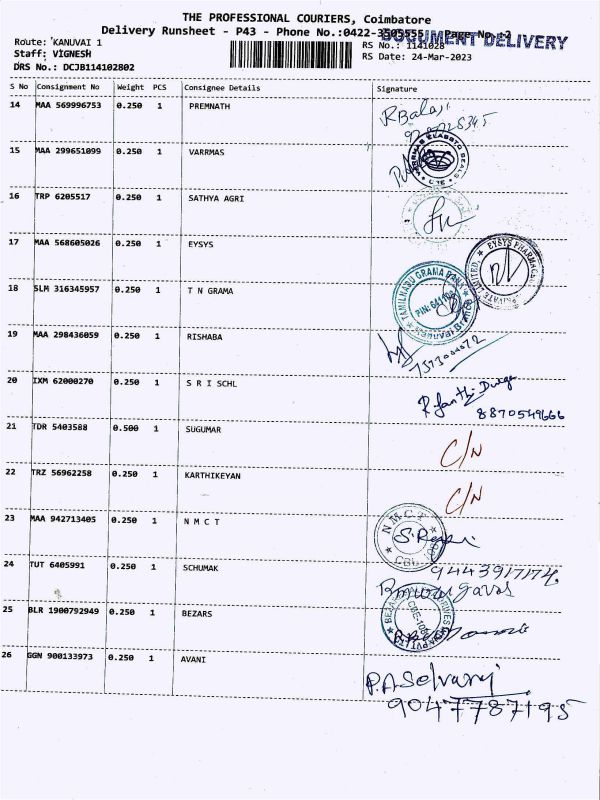 THE PROFESSIONAL COURIERS, Coimbatore
Delivery Runsheet - P43 - Phone No.:0422-3505555 Page No.:2
DOCUMENT DELIVERY
Route: KANUVAI 1
RS No.: 1141028
Staff: VIGNESH
RS Date: 24-Mar-2023
DRS No.: DCJB114102802
S No Consignment No Weight PCS Consignee Details Signature
14 MAA 569996753 0.250 1 PREMNATH
R Balaji
15 MAA 299651099 0.250 1 VARRMAS
16 TRP 6205517 0.250 1 SATHYA AGRI
17 MAA 568605026 0.250 1 EYSYS
EYSYS PHARMAC
PRIVATE LIMITED
18 SLM 316345957 0.250 1 T N GRAMA
TAMILNADU GRAMA BANK
19 MAA 298436059 0.250 1 RISHABA
20 IXM 62000270 0.250 1 S R I SCHL
8870549666
21 TDR 5403588 0.500 1 SUGUMAR
C/N
22 TRZ 56962258 0.250 1 KARTHIKEYAN
C/N
23 MAA 942713405 0.250 1 N M C T
N M C T
24 TUT 6405991 0.250 1 SCHUMAK
25 BLR 1900792949 0.250 1 BEZARS
26 GGN 900133973 0.250 1 AVANI
P.A Selvaraj
9047787195